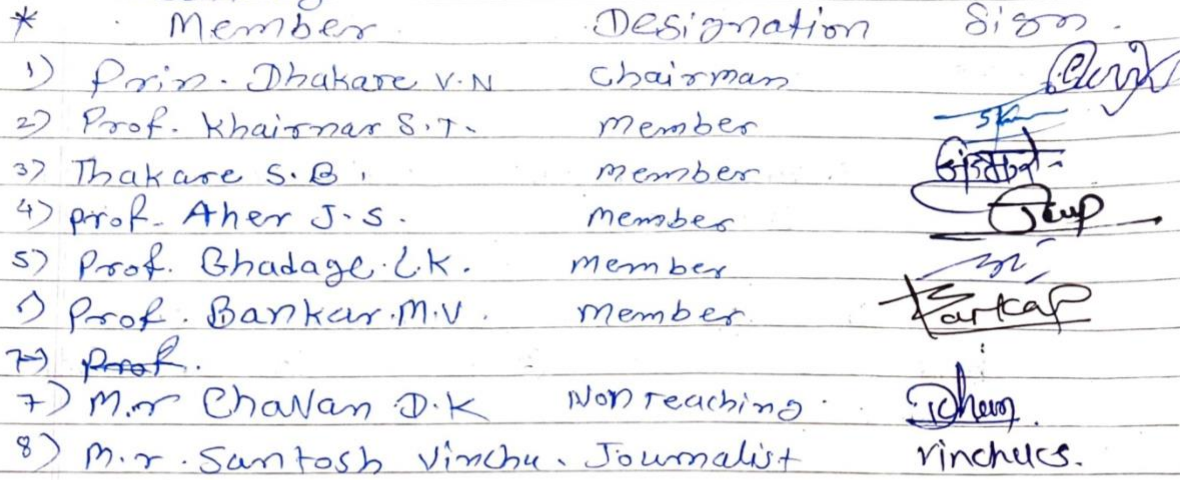 * Member Designation Sign.
1) Prin. Dhakare V.N Chairman
2) Prof. Khairnar S.T. member
3) Thakare S.B. member
4) prof. Aher J.S. member
5) Prof. Ghadage L.K. member
6) Prof. Bankar M.V. member
7) Prof.
7) M.r Chavan D.K Non Teaching
8) M.r. Santosh Vinchu. Journalist vinchucs.